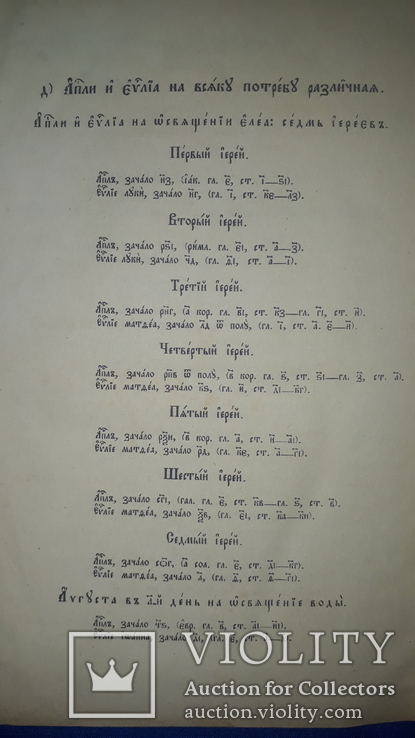 д) А҆пⷭ҇ли и҆ є҆ѵⷢ҇лїа на всѧ́кꙋ потре́бꙋ разли̑чнаѧ.
А҆пⷭ҇ли и҆ є҆ѵⷢ҇лїа на ѡ҆свѧще́нїи є҆ле́а: се́дмь і҆ере́евъ.
Пе́рвый і҆ере́й.
А҆пⷭ҇лъ, зача́ло н҃з, (і҆а́к. гл. є҃, ст. і҃—ѕ҃і).
Є҆ѵⷢ҇лїе лꙋкѝ, зача́ло н҃г, (гл. і҃, ст. к҃є—л҃з).
Вторы́й і҆ере́й.
А҆пⷭ҇лъ, зача́ло рѕ҃і, (ри́мл. гл. є҃і, ст. а҃—з҃).
Є҆ѵⷢ҇лїе лꙋкѝ, зача́ло ч҃д, (гл. ѳ҃і, ст. а҃—і҃).
Тре́тїй і҆ере́й.
А҆пⷭ҇лъ, зача́ло рн҃г, (а҃ кор. гл. в҃і, ст. к҃з—гл. г҃і, ст. и҃).
Є҆ѵⷢ҇лїе матѳе́а, зача́ло л҃д ѿ полꙋ̀, (гл. і҃, ст. а҃. є҃—и҃).
Четве́ртый і҆ере́й.
А҆пⷭ҇лъ, зача́ло рп҃в ѿ полꙋ̀, (в҃ кор. гл. ѕ҃, ст. ѕ҃і—гл. з҃, ст. а҃).
Є҆ѵⷢ҇лїе матѳе́а, зача́ло к҃ѕ, (гл. и҃, ст. д҃і—к҃г).
Пѧ́тый і҆ере́й.
А҆пⷭ҇лъ, зача́ло рѯ҃и, (в҃ кор. гл. а҃, ст. и҃—а҃і).
Є҆ѵⷢ҇лїе матѳе́а, зача́ло р҃д, (гл. к҃є, ст. а҃—г҃і).
Шесты́й і҆ере́й.
А҆пⷭ҇лъ, зача́ло сг҃і, (гал. гл. є҃, ст. к҃в—гл. ѕ҃, ст. в҃).
Є҆ѵⷢ҇лїе матѳе́а, зача́ло ѯ҃в, (гл. є҃і, ст. к҃а—к҃и).
Седмы́й і҆ере́й.
А҆пⷭ҇лъ, зача́ло со҃г, (а҃ сол. гл. є҃, ст. д҃і—к҃г).
Є҆ѵⷢ҇лїе матѳе́а, зача́ло л҃, (гл. ѳ҃, ст. ѳ҃—г҃і).
А҆́ѵгꙋста въ а҃.й де́нь на ѡ҆свѧще́нїе воды̀.
А҆пⷭ҇лъ, зача́ло т҃ѕ, (є҆вр. гл. в҃, ст. а҃і—и҃і).
Є҆ѵⷢ҇лїе і҆ѡа́нна, зача́ло д҃і, (гл. є҃, ст.
VIOLITY
Auction for Collectors
auction.violity.com